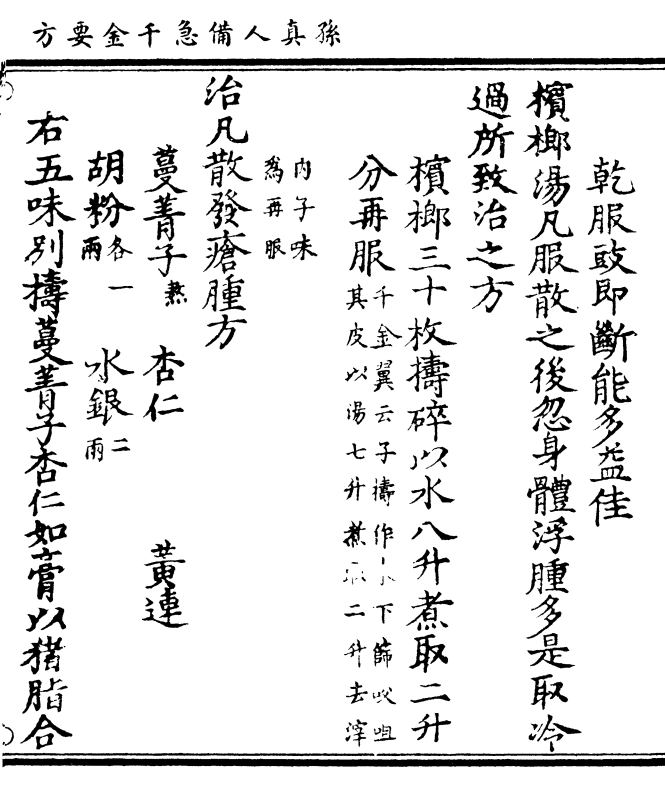 孫真人備急千金要方
乾服豉即斷能多益佳
檳榔湯凡服散之後忽身體浮腫多是取冷
過所致治之方
檳榔三十枚擣碎以水八升煮取二升
分再服千金翼云子擣作末下篩㕮咀
其皮以湯七升煮取二升去滓
内子味
為再服
治凡散發瘡腫方
蔓菁子熬 杏仁 黃連
胡粉各一兩 水銀二兩
右五味別擣蔓菁子杏仁如膏以猪脂合